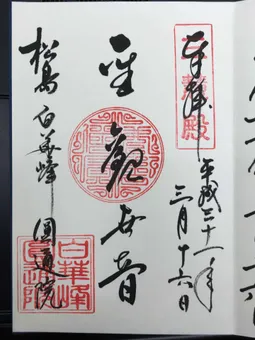 奉拝
平成三十一年
三月十六日
聖観世音
松島 白華峰 圓通院
白華峰
圓通院